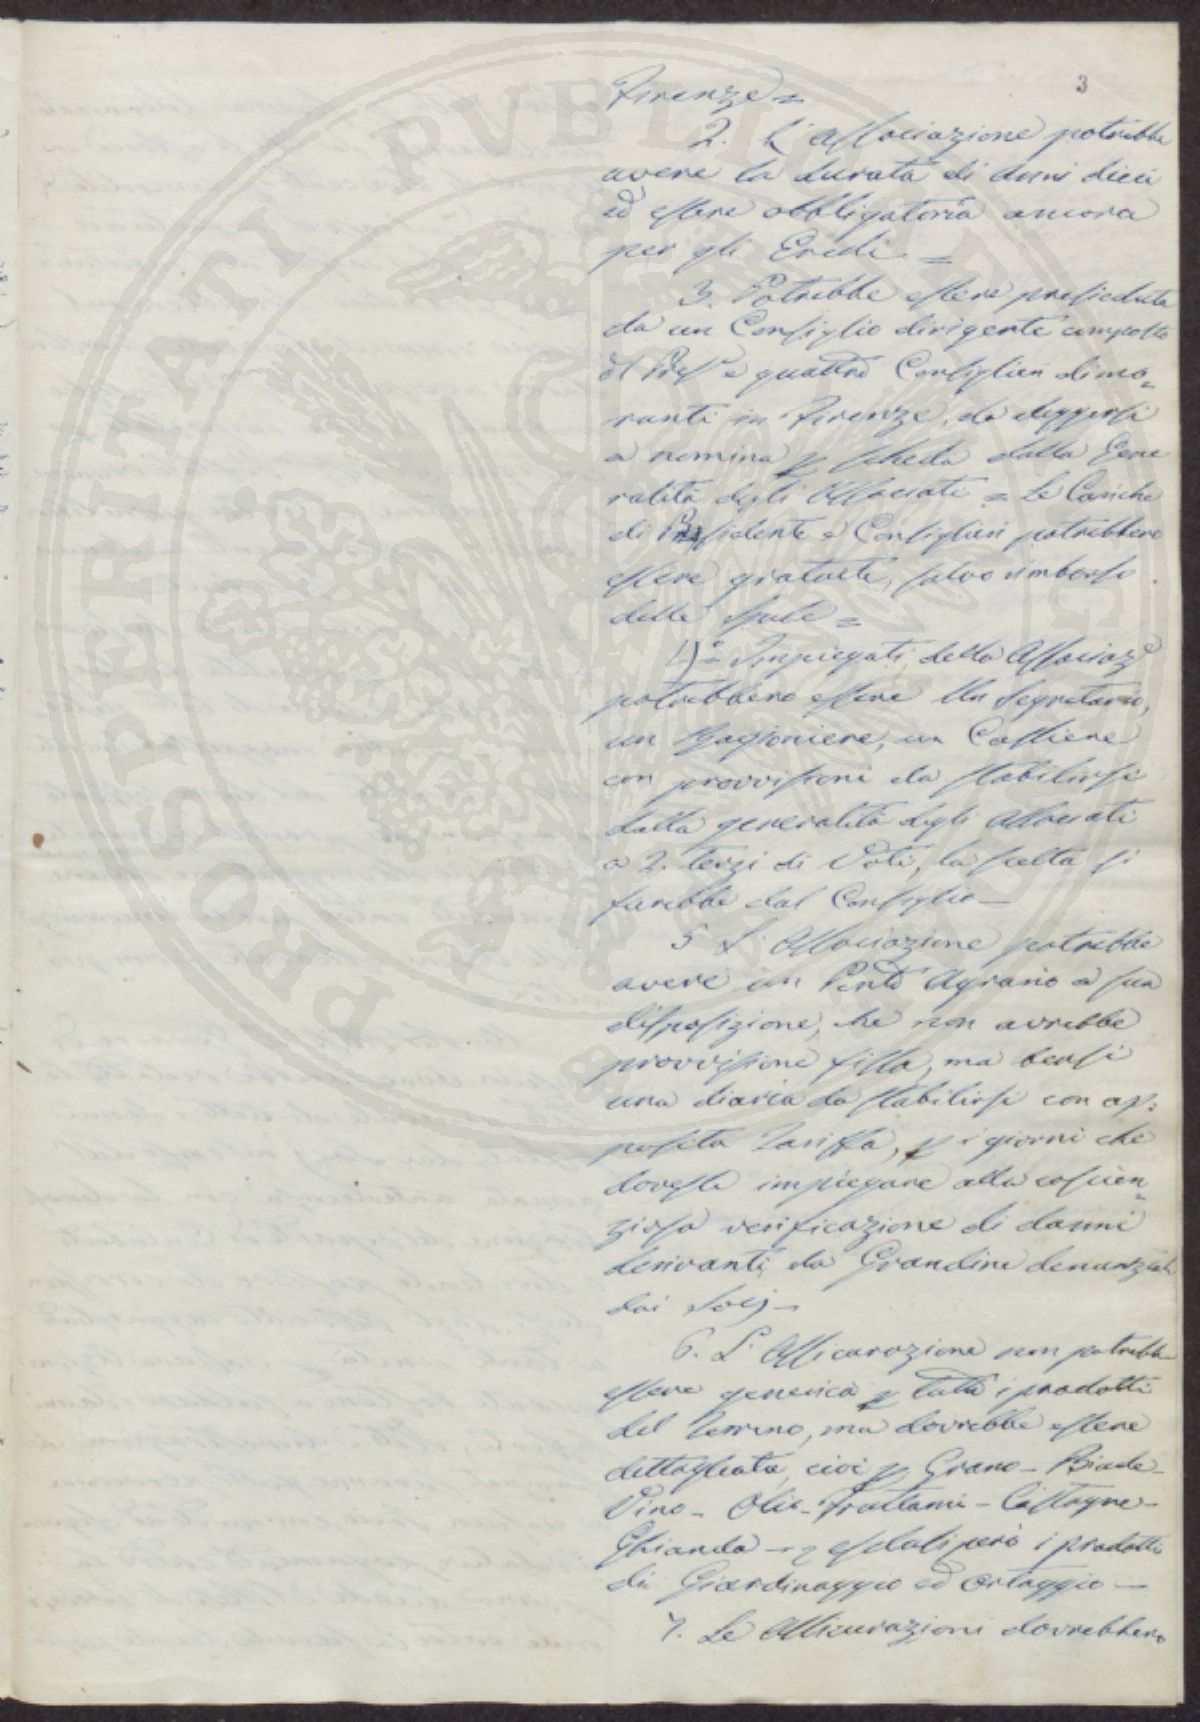 3
Firenze =
2. L'Associazione potrebbe
avere la durata di Anni dieci
ed essere obbligatoria ancora
per gli Eredi =
3. Potrebbe essere presieduta
da un Consiglio dirigente composto
e quattro Consiglieri dimo=
ranti in Firenze, da eleggersi
a nomina p scheda dalla Gene
ralità degli Associati = Le Cariche
di Presidente e Consiglieri potrebbero
essere gratuite, salvo rimborsi
delle spese =
4)° = Impiegati della Associaz.e
potrebbero essere Un Segretario,
un Ragioniere, un Cassiere
con provvisioni da stabilirsi
dalla generalità degli Associati
a 2. terzi di Voti, la scelta si
farebbe dal Consiglio —
5 L'Associazione potrebbe
avere un Perito Agrario a sua
disposizione, che non avrebbe
provvisione fissa, ma bensì
una diaria da stabilirsi con ap:
posita Tariffa, p i giorni che
dovesse impiegare alla coscien=
ziosa verificazione di danni
derivanti da Grandine denunziati
dai Socj —
6. L'Assicurazione non potrebbe
essere generica p tutti i prodotti
del Terreno, ma dovrebbe essere
dettagliata, cioè p Grano - Biade -
Vino - Olio - Fruttami - Castagne -
Ghianda — esclusi però i prodotti
di Giardinaggio ed Ortaggio —
7. Le Assicurazioni dovrebbero
PROSPERITATI PVBLICAE